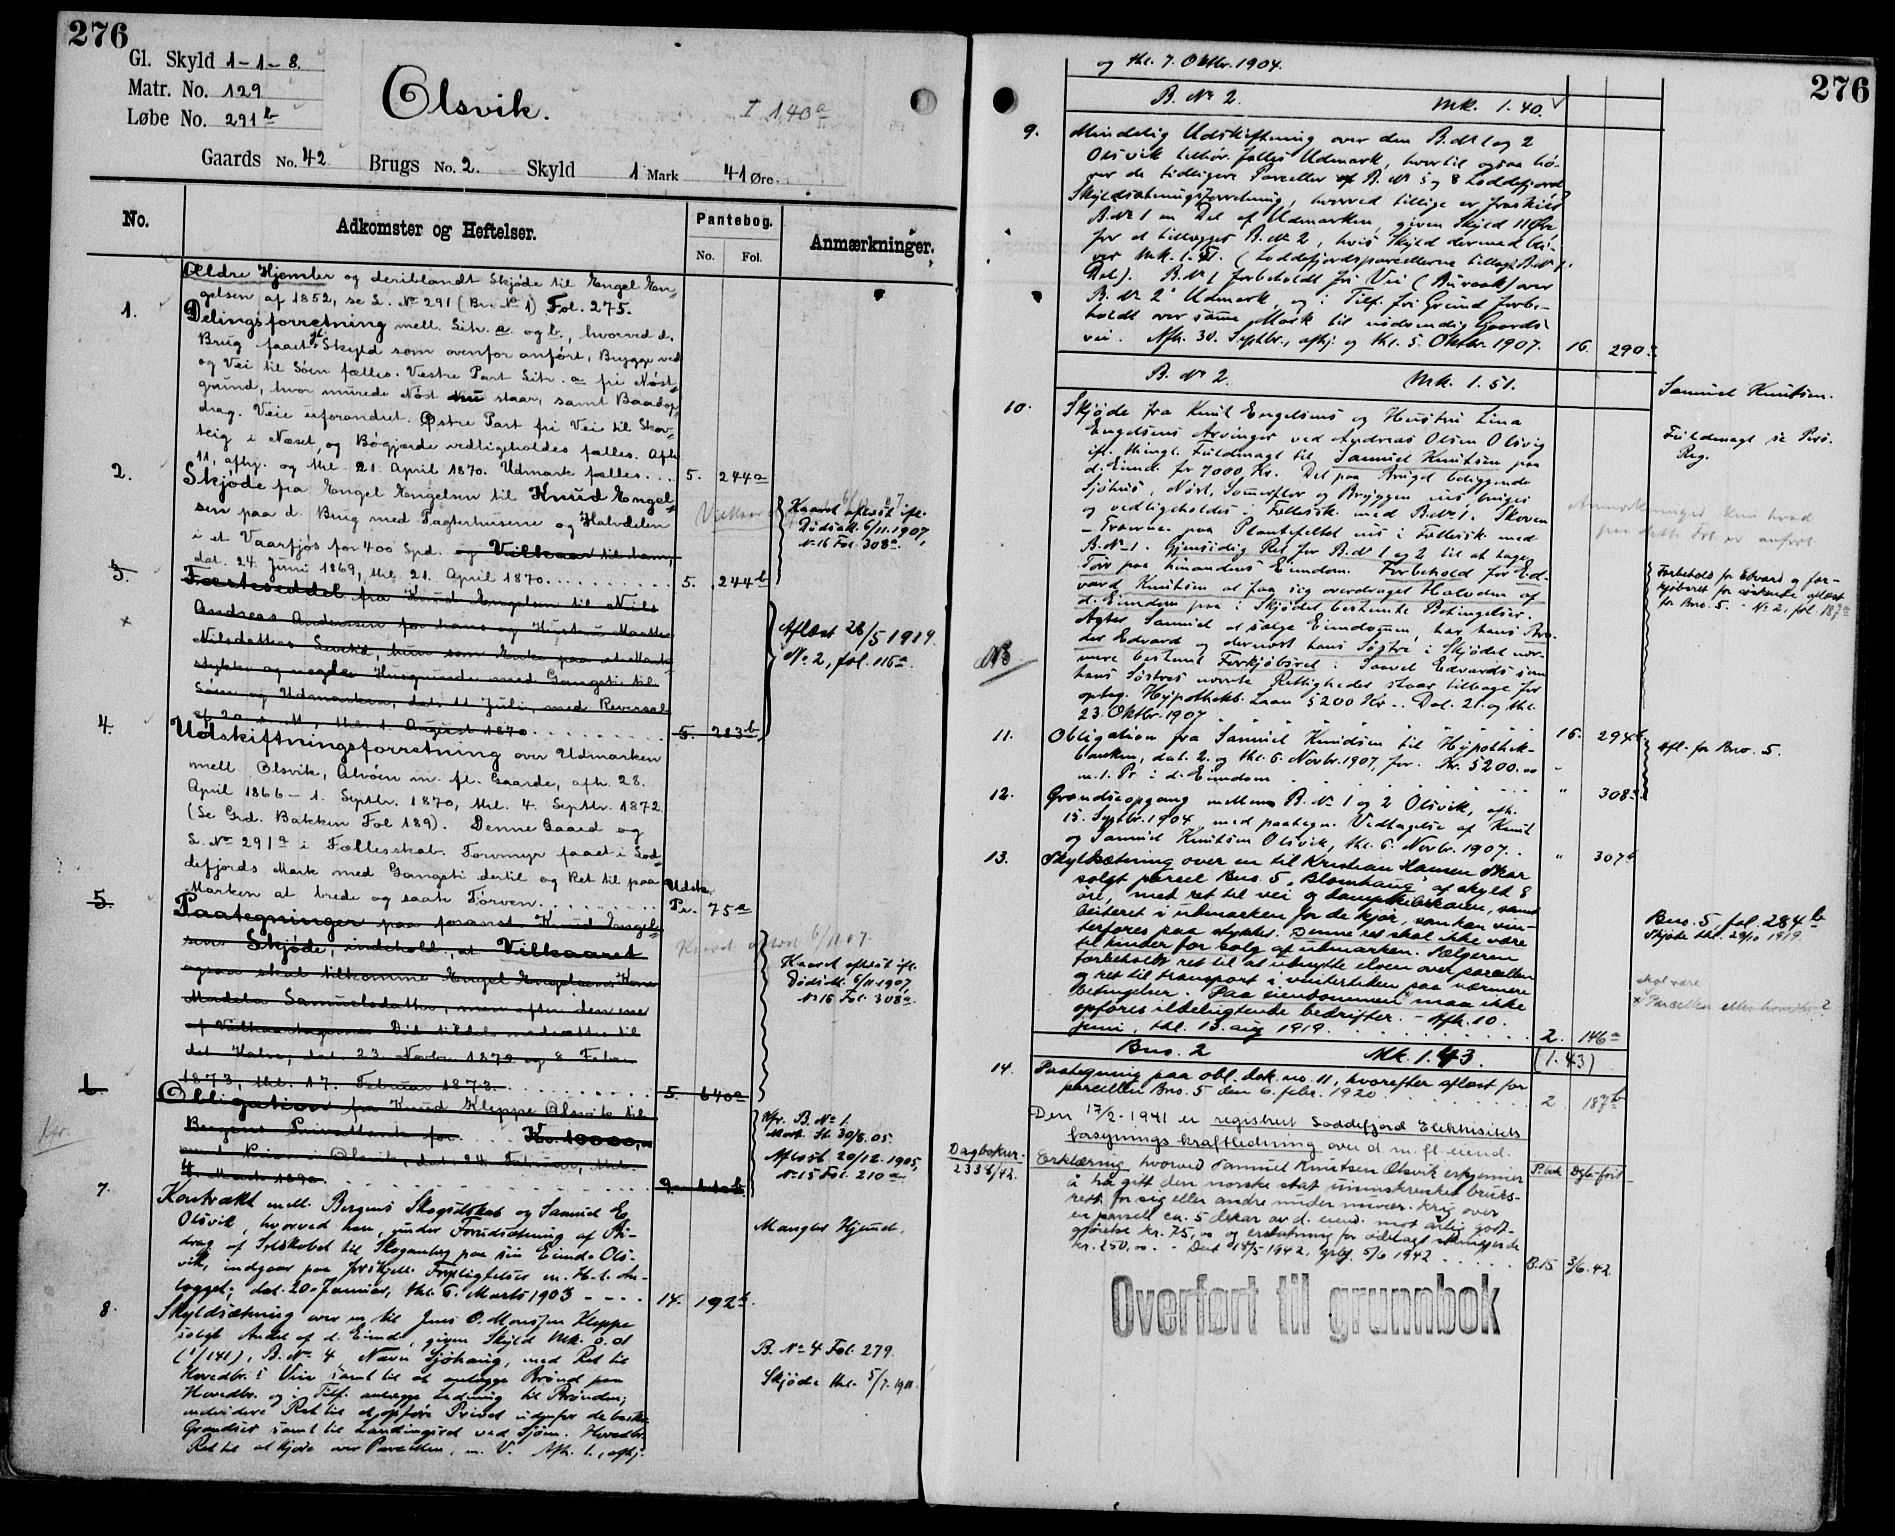 276
Gl. Skyld 1-1-8.
Matr. No. 129
Løbe No. 291 b
Olsvik.
I 140a
Gaards No. 42 Brugs No. 2. Skyld 1 Mark 41 Øre.
No. Adkomster og Heftelser. Pantebog. Anmærkninger.
No. Fol.
Ældre Hjemler og deriblandt Skjøde til Engel En-
gelsen af 1852, se L. No 291 (Br. No 1) Fol. 275.
1. Delingsforretning mell. Litr. a og b, hvorved d.
Brug faaet Skyld som ovenfor anført, Brygge ved
og Vei til Søen fælles. Vestre Part Litr. a fri Nøst-
grund, hvor murede Nøst nu staar, samt Baadop-
drag. Veie uforandret. Østre Part fri Vei til Skov-
teig i Næset, og Bøgjerde vedligeholdes fælles. Afh.
11, afhj. og thl. 21. April 1870. Udmark fælles. . . 5. 244a
2. Skjøde fra Engel Engelsen til Knud Engel-
sen paa d. Brug med Pagterhusene og Halvdelen
i et Vaarfjøs for 400 Spd. og Vilkaar til ham,
dat. 24. Juni 1869, thl. 21. April 1870. . . . . 5. 244b
Kaaret aflæst ifl.
Dødsatt. 6/11.1907,
No 16 Fol. 308a.
3. Fæsteseddel fra Knud Engelsen til Niels
Andreas Andersen for hans og Hustru Marthe
Nilsdatters Levetid, hun som Enke paa et Mark-
stykke og nogle Husgrunde med Gangsti til
Søen og Udmarken, dat. 11 Juli, med Reversal
af 20 s. M., thl. 1. August 1870. . . . . 5. 283b
Aflæst 28/5 1919.
No. 2, fol. 116a.
4. Udskiftningsforretning over Udmarken
mell. Olsvik, Alvøen m. fl. Gaarde, afh. 28.
April 1866 - 1. Septbr. 1870, thl. 4. Septbr. 1872
(Se Grd. Bakken Fol 189). Denne Gaard og
L. No 291a i Fællesskab. Torvmyr faaet i Lod-
defjords Mark med Gangsti dertil og Ret til paa
Marken at brede og saate Torven. . . . . Udsk. Pr. 75a
5. Paategninger paa foranst. Knud Engel-
sens Skjøde, indehold. at Vilkaaret
ogsaa skal tilkomme Engel Engelsens Kone
Madela Samuelsdatter, men efter den ene
af Vilkaartagernes Død tildels nedsættes til
det Halve, dat. 23. Novbr. 1872 og 8 Febr.
1873, thl. 17. Februar 1873. . . . . 5. 640a
Kaaret aflæst 6/11 07.
Kaaret aflæst ifl.
Dødsatt. 6/11.1907,
No 16 Fol. 308a.
6. Obligation fra Knud Kleppe Olsvik til
Bergens Privatbank for . . . Kr. 10000,00
Vfr. B. No 1.
Mort. St. 30/8.05.
Aflæst 20/12.1905,
No 15 Fol. 210a
7. Kontrakt mell. Bergens Skogselskab og Samuel E.
Olsvik, hvorved han, under Forudsætning af Bi-
drag af Selskabet til Skoganlæg paa sin Eiendo Ols-
vik, indgaar paa forskjell. Forpligtelser m. H. t. An-
lægget; dat. 20. Januar, thl. 6. Marts 1903 - - - . 14. 192b.
Mangler Hjemel.
8. Skyldsætning over en til Jens O. Monsen Kleppe
solgt Andel af d. Eiend., given Skyld Mk. 0.01
(1/141), B. No 4, Navn Sjøhaug, med Ret til
Hovedbr.s Veie samt til at anlægge Brønd paa
Hovedbr. og i Tilf. anlægge Ledning til Brønden;
endvidere Ret til at opføre Privet udenfor de beskr.
Grændser samt til Landingsted ved Sjøen. Hovedbr.
Ret til at kjøre over Parcellen, m. V. Afh. 1., afhj.
B. No 4 Fol. 279.
Skjøde thl. 5/7. 1911.
276
og thl. 7. Oktbr. 1904.
B. No 2. Mk. 1.40.
9. Mindelig Udskiftning over den B. No 1 og 2
Olsvik tilhør. fælles Udmark, hvortil ogsaa hø-
rer de tidligere Parceller af B. No 5 og 8 Loddefjord
Skyldsætningsforretning, hvorved tillige er fraskilt
B. No 1 en Del af Udmarken, given Skyld 11 Øre
for at tillægges B. No 2, hvis Skyld dermed bli-
ver Mk. 1.51. (Loddefjordsparcellerne tillagt B. No 1.
Del). B. No 1 forbeholdt fri Vei (Buraak) over
B. No 2s Udmark, og i Tilf. fri Grund forbe-
holdt over samme Mark til nødvendig Gaards-
vei. Afh. 30. Septbr., afhj. og thl. 5. Oktbr. 1907. 16. 290a.
B. No 2. Mk. 1.51.
10. Skjøde fra Knut Engelsens og Hustru Lina
Engelsens Arvinger ved Andreas Olsen Olsvig
ifl. thingl. Fuldmagt til Samuel Knutsen paa
d. Eiend. for 7000 Kr. Det paa Bruget beliggende
Sjøhus, Nøst, Sommerflor og Bryggen m.v. bruges
og vedligeholdes i Fællessk. med B. No 1. Skoven
- Træerne paa Plantefeltet m.v. i Fællessk. med
B. No 1. Gjensidig Ret for B. No 1 og 2 til at tage
Torv paa hinandens Eiendom. Forbehold for Ed-
vard Knutsen at faa sig overdraget Halvden af
d. Eiendom paa i Skjødet bestemte Betingelser.
Agter Samuel at sælge Eiendommen, har hans Bro-
der Edvard og dernæst hans Søstre i Skjødet nær-
mere bestemt Forkjøbsret. Saavel Edvards som
hans Søstres nævnte Rettigheder staar tilbage for
optag. Hypothekb. Laan 5200 Kr. - Dat. 21. og thl.
23. Oktbr. 1907. . . . . 16. 294b.
NB
Samuel Knutsen.
Fuldmagt se Pers.
Reg.
Forbehold for Edvard og for-
kjøbsret for søskende aflæst
for Bno. 5. - No 2. fol. 187b
11. Obligation fra Samuel Knudsen til Hypothek-
banken, dat. 2. og thl. 6. Novbr. 1907, for Kr. 5200.00
m. 1. Pr. i d. Eiendom . . . . " 308a.
Afl. for Bno. 5.
12. Grændseopgang mellem B. No 1 og 2 Olsvik, afh.
15. Septbr. 1904 med paategn. Vedtagelse af Knut
og Samuel Knutsen Olsvik, thl. 6. Novbr. 1907. . " 307b
13. Skyldsætning over en til Kristian Hansen Skar
solgt parcel Bno. 5, Blomhaug, af skyld 8
øre, med ret til vei og dampskibskaien, samt
beiteret i utmarken for de kjør, som kan vin-
terføres paa stykket. Denne ret skal ikke være
til hinder for salg af utmarken. Sælgeren
forbeholdt ret til at utnytte elven over parcellen
og ret til transport i vintertiden paa nærmere
betingelser. Paa eiendommen maa ikke
opføres ildelugtende bedrifter. - Afh. 10.
juni, thl. 13. aug 1919. . . . . 2. 146a
Bno. 5, fol. 284b
Skjøde thl. 29/10 1919.
skal være
x Parcellen eller hovedbr.?
Bno. 2 Mk. 1.43. (1.43)
14. Paategning paa obl. dok. no. 11, hvorefter aflæst for
parcellen Bno. 5 den 6. febr. 1920 . . . . 2 187b
Den 17/2-1941 er registrert Loddefjord Elektrisitets
forsynings kraftledning over d. m. fl. eiend.
Dagboknr.
2338/42.
Erklæring hvorved Samuel Knutsen Olsvik erkjenner
å ha gitt den norske stat uinnskrenket bruks-
rett for sig eller andre under nuvær. krig over
en parsell ca. 5 dekar av d. eiend. mot årlig godt-
gjørelse kr. 75,00 og erstatning for ødelagt skinngjerde
kr. 250,00. - Dat 18/5-1942, gbf. 5/6 1942 . . . . B.15 5/6.42.
P.bok Dgb.ført
Overført til grunnbok